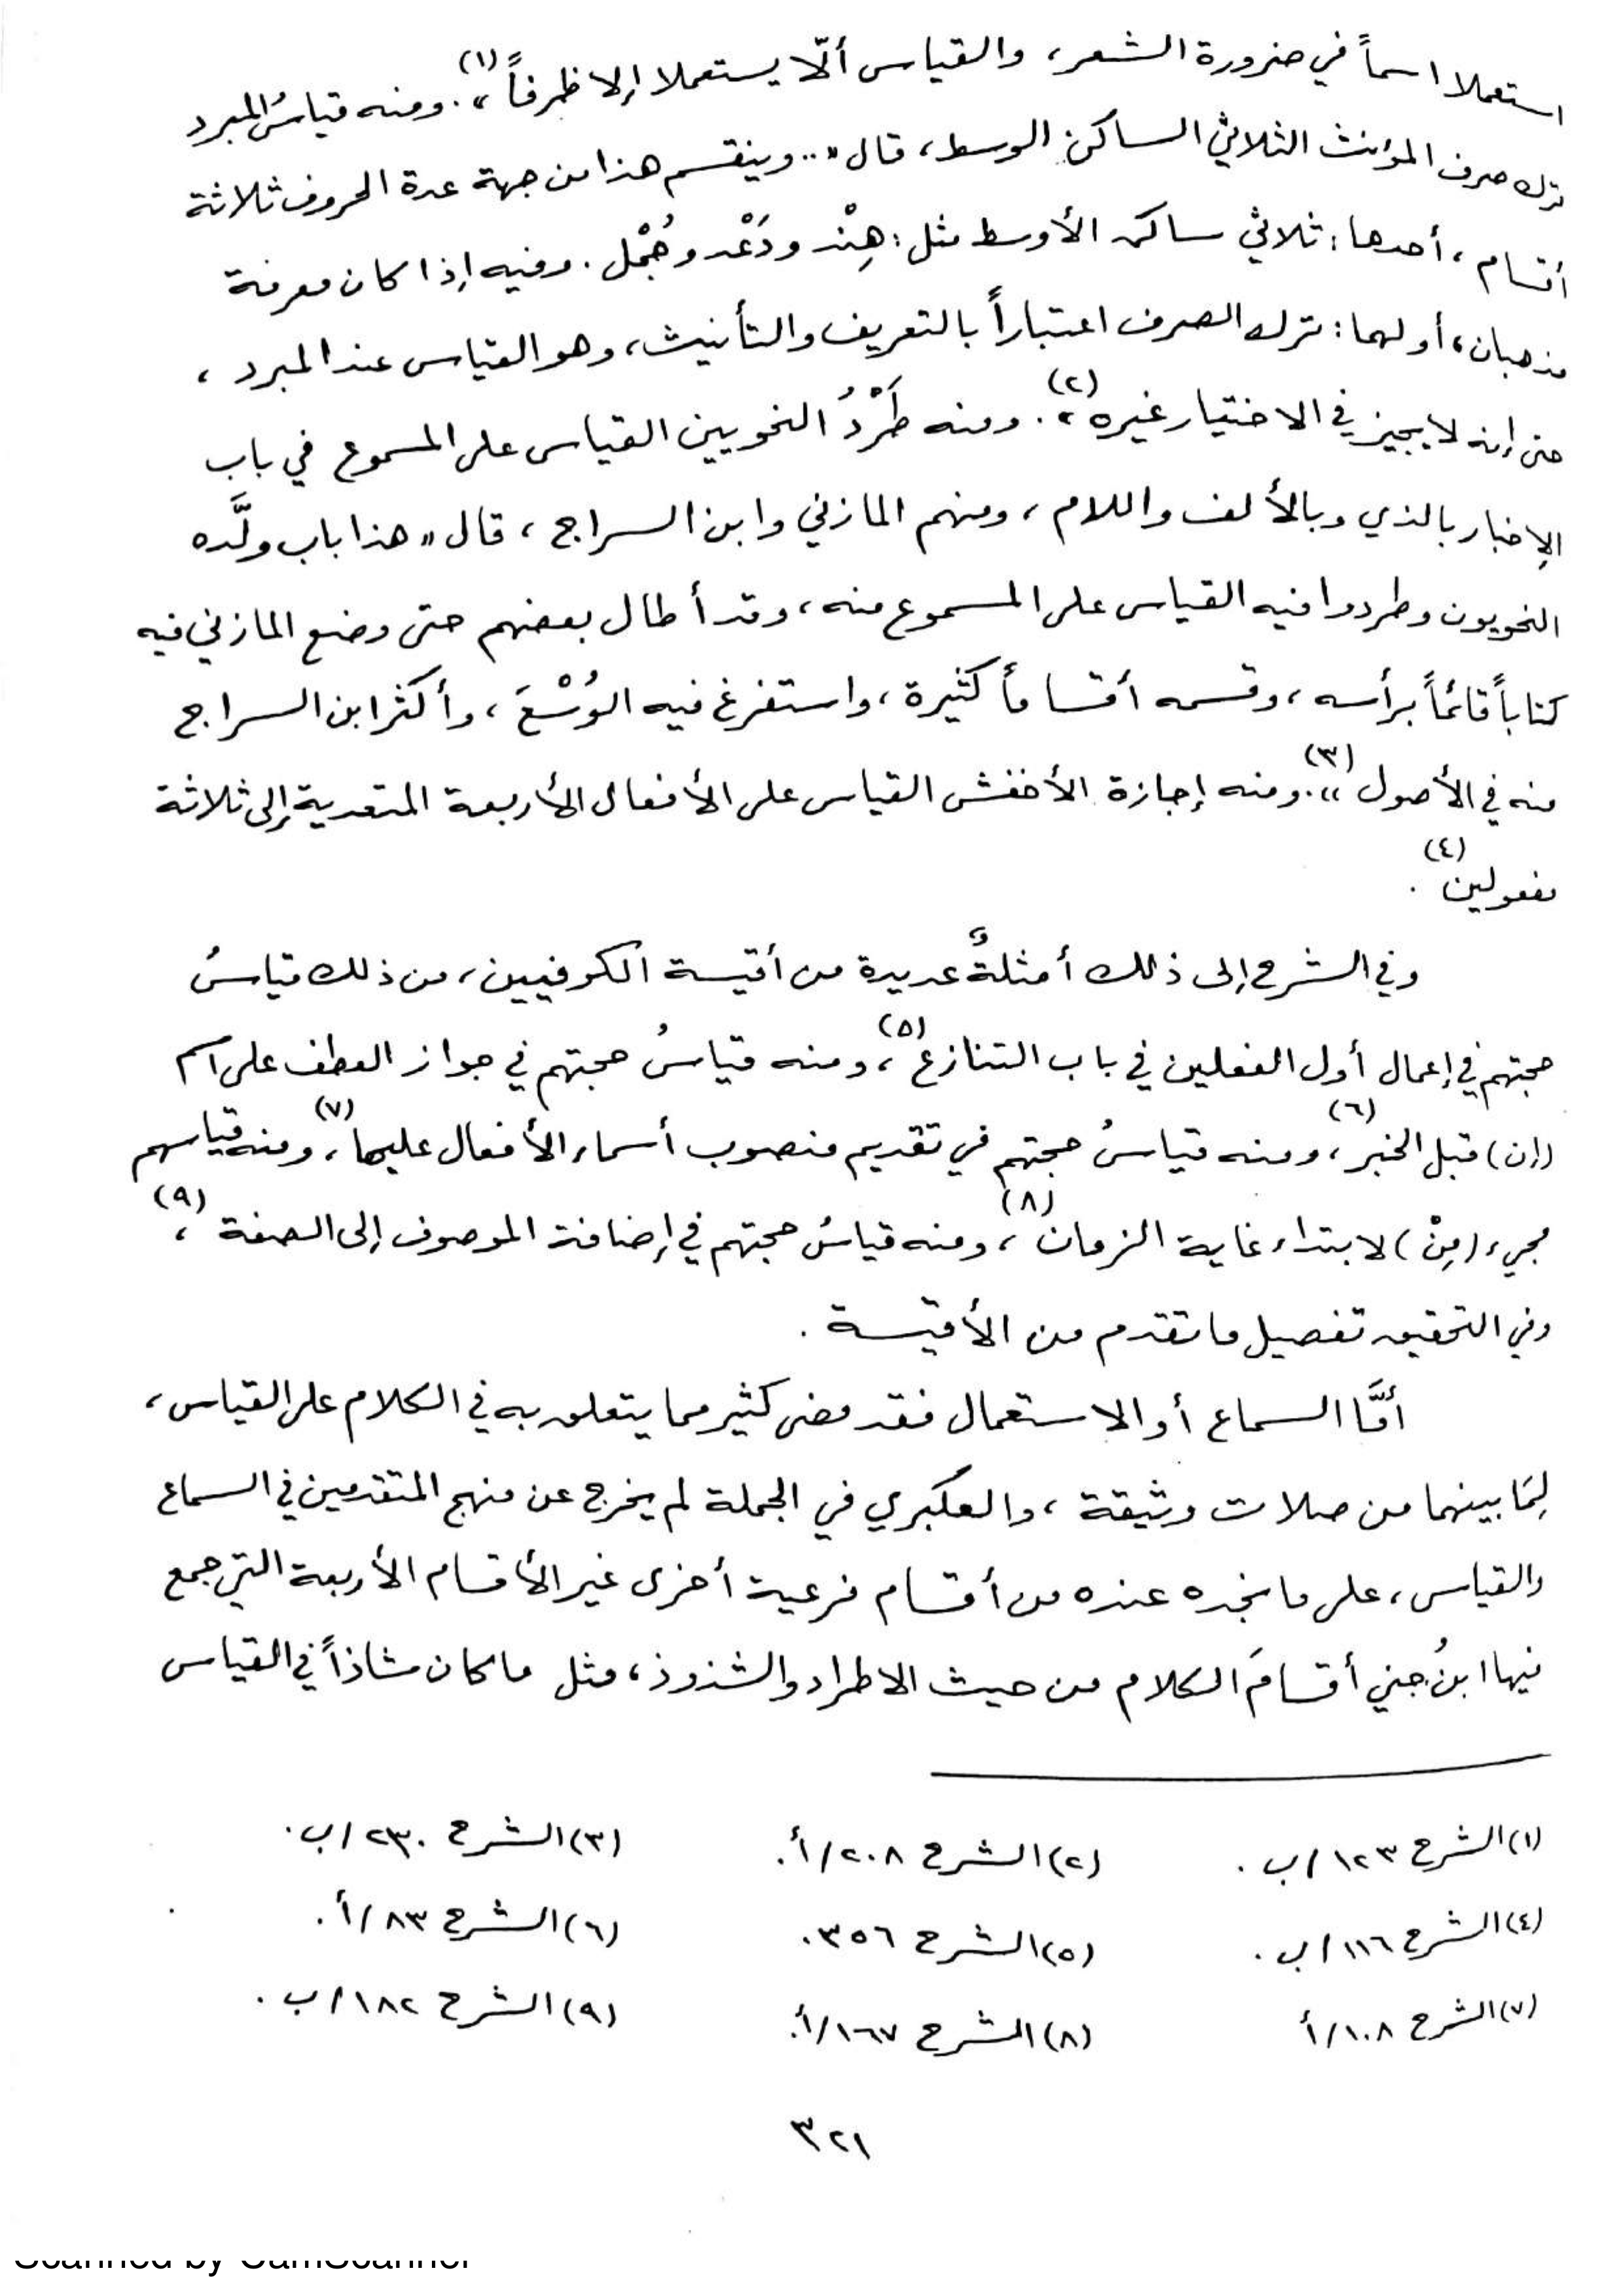 استعملا اسماً في ضرورة الشعر، والقياس ألّا يستعملا إلا ظرفاً»(١). ومنه قياسُ المبرد
ترك صرف المؤنث الثلاثي الساكن الوسط، قال «.. وينقسم هذا من جهة عدة الحروف ثلاثة
أقسام، أحدها: ثلاثي ساكن الأوسط مثل: هِنْد ودَعْد وجُمْل. وفيه إذا كان معرفة
مذهبان، أولهما: ترك الصرف اعتباراً بالتعريف والتأنيث، وهو القياس عند المبرد،
حتى إنه لا يجيز في الاختيار غيره»(٢). ومنه طَرْدُ النحويين القياس على المسموع في باب
الإخبار بالذي وبالألف واللام، ومنهم المازني وابن السراج، قال «هذا باب ولَّده
النحويون وطردوا فيه القياس على المسموع منه، وقد أطال بعضهم حتى وضع المازني فيه
كتاباً قائماً برأسه، وقسمه أقساماً كثيرة، واستفرغ فيه الوُسْعَ، وأكثر ابن السراج
منه في الأصول»(٣). ومنه إجازة الأخفش القياس على الأفعال الأربعة المتعدية إلى ثلاثة
مفعولين(٤).
وفي الشرح إلى ذلك أمثلةٌ عديدة من أقيسة الكوفيين، من ذلك قياسُ
حجتهم في إعمال أول الفعلين في باب التنازع(٥)، ومنه قياسُ حجتهم في جواز العطف على اسم
(إن) قبل الخبر(٦)، ومنه قياسُ حجتهم في تقديم منصوب أسماء الأفعال عليها(٧)، ومنه قياسهم
مجيء (مِنْ) لابتداء غاية الزمان(٨)، ومنه قياسُ حجتهم في إضافة الموصوف إلى الصفة(٩)،
وفي التحقيق تفصيل ما تقدم من الأقيسة.
أمَّا السماع أو الاستعمال فقد مضى كثير مما يتعلق به في الكلام على القياس،
لِمَا بينهما من صلات وثيقة، والعكبري في الجملة لم يخرج عن منهج المتقدمين في السماع
والقياس، على ما نجده عنده من أقسام فرعية أخرى غير الأقسام الأربعة التي جمع
فيها ابنُ جني أقسامَ الكلام من حيث الاطراد والشذوذ، مثل ما كان شاذاً في القياس
(١) الشرح ١٢٣/ب. (٢) الشرح ٢٠٨/أ. (٣) الشرح ٢٣٠/ب.
(٤) الشرح ١١٦/ب. (٥) الشرح ٣٥٦. (٦) الشرح ٨٣/أ.
(٧) الشرح ١٠٨/أ (٨) الشرح ١٦٧/أ. (٩) الشرح ١٨٢/ب.
٣٢١
Scanned by CamScanner